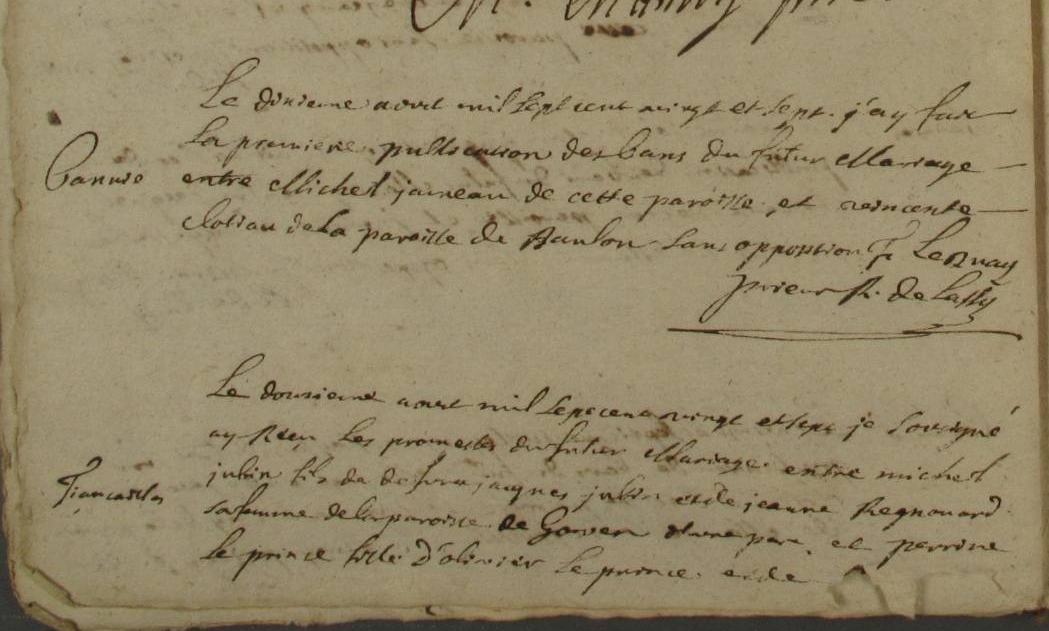 Le dixieme aout mil sept cent vingt et sept j'ay fait
la premiere publication des bans du futur Mariage
Bannie
entre Michel janeau de cette paroisse et
de la paroisse de Baulon sans opposition
prieur R. de Lassy
Le dousieme aout mil sept cent vingt et sept je soussigné
ay Receu les promesses du futur Mariage entre michel
jubin fils de defunt jacques jubin et de jeanne Regnouard
Fiançailles
sa femme de la paroisse de Goven d'une part et perrine
le prince fille d'olivier le prince et de